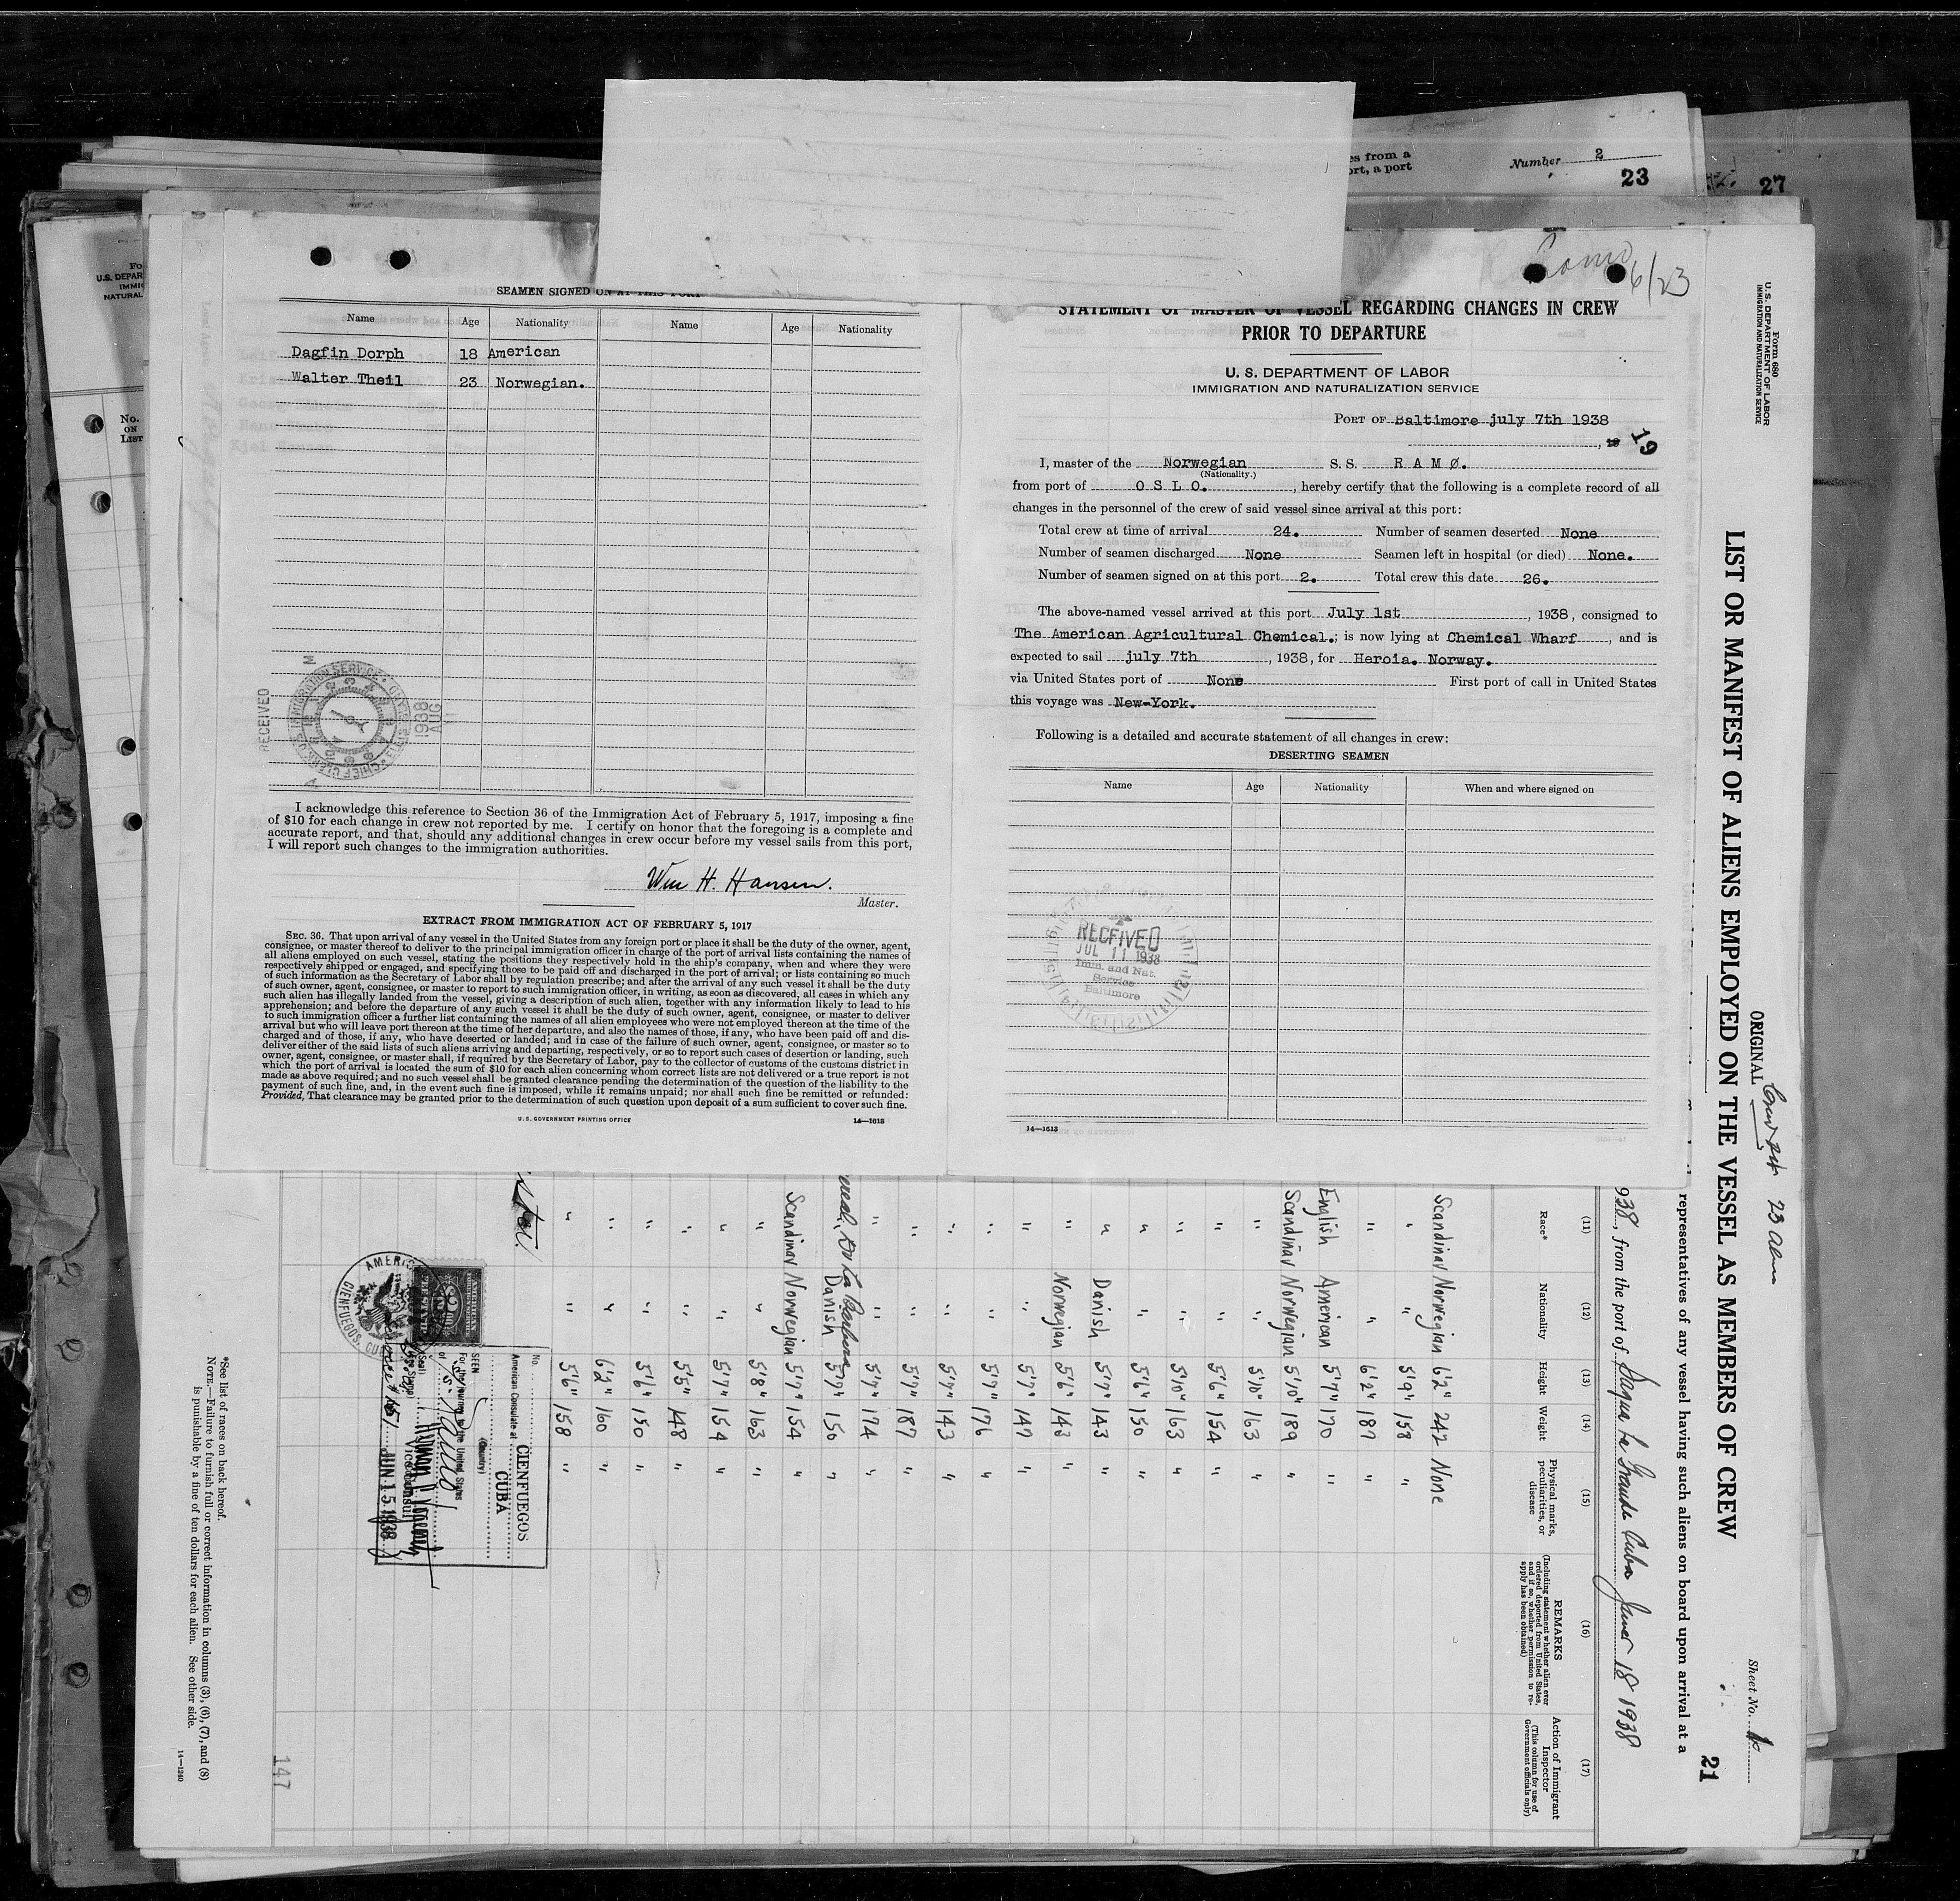 es from a
ort, a port
Number 2
23
27
Fo
U.S. DEPAR
IMMIG
NATURAL
No.
ON
LIST
SEAMEN SIGNED ON AT THIS PORT
Name Age Nationality Name Age Nationality
Dagfin Dorph 18 American
Walter Theil 23 Norwegian.
RECEIVED
1938
AUG
I acknowledge this reference to Section 36 of the Immigration Act of February 5, 1917, imposing a fine
of $10 for each change in crew not reported by me. I certify on honor that the foregoing is a complete and
accurate report, and that, should any additional changes in crew occur before my vessel sails from this port,
I will report such changes to the immigration authorities.
Wm H. Hansen.
Master.
EXTRACT FROM IMMIGRATION ACT OF FEBRUARY 5, 1917
SEC. 36. That upon arrival of any vessel in the United States from any foreign port or place it shall be the duty of the owner, agent,
consignee, or master thereof to deliver to the principal immigration officer in charge of the port of arrival lists containing the names of
all aliens employed on such vessel, stating the positions they respectively hold in the ship's company, when and where they were
respectively shipped or engaged, and specifying those to be paid off and discharged in the port of arrival; or lists containing so much
of such information as the Secretary of Labor shall by regulation prescribe; and after the arrival of any such vessel it shall be the duty
of such owner, agent, consignee, or master to report to such immigration officer, in writing, as soon as discovered, all cases in which any
such alien has illegally landed from the vessel, giving a description of such alien, together with any information likely to lead to his
apprehension; and before the departure of any such vessel it shall be the duty of such owner, agent, consignee, or master to deliver
to such immigration officer a further list containing the names of all alien employees who were not employed thereon at the time of the
arrival but who will leave port thereon at the time of her departure, and also the names of those, if any, who have been paid off and dis-
charged and of those, if any, who have deserted or landed; and in case of the failure of such owner, agent, consignee, or master so to
deliver either of the said lists of such aliens arriving and departing, respectively, or so to report such cases of desertion or landing, such
owner, agent, consignee, or master shall, if required by the Secretary of Labor, pay to the collector of customs of the customs district in
which the port of arrival is located the sum of $10 for each alien concerning whom correct lists are not delivered or a true report is not
made as above required; and no such vessel shall be granted clearance pending the determination of the question of the liability to the
payment of such fine, and, in the event such fine is imposed, while it remains unpaid; nor shall such fine be remitted or refunded:
Provided, That clearance may be granted prior to the determination of such question upon deposit of a sum sufficient to cover such fine.
U.S. GOVERNMENT PRINTING OFFICE 14—1613
6/23
STATEMENT OF MASTER OF VESSEL REGARDING CHANGES IN CREW
PRIOR TO DEPARTURE
U. S. DEPARTMENT OF LABOR
IMMIGRATION AND NATURALIZATION SERVICE
PORT OF Baltimore july 7th 1938
19
I, master of the Norwegian S. S. R A M Ø.
(Nationality.)
from port of O S L O. , hereby certify that the following is a complete record of all
changes in the personnel of the crew of said vessel since arrival at this port:
Total crew at time of arrival 24. Number of seamen deserted None
Number of seamen discharged None Seamen left in hospital (or died) None.
Number of seamen signed on at this port 2. Total crew this date 26.
The above-named vessel arrived at this port July 1st , 1938, consigned to
The American Agricultural Chemical.; is now lying at Chemical Wharf , and is
expected to sail july 7th , 1938, for Heroia. Norway.
via United States port of None First port of call in United States
this voyage was New-York.
Following is a detailed and accurate statement of all changes in crew:
DESERTING SEAMEN
Name Age Nationality When and where signed on
RECEIVED
JUL 11 1938
Imm. and Nat.
Service
Baltimore
14—1613
Form 680
U. S. DEPARTMENT OF LABOR
IMMIGRATION AND NATURALIZATION SERVICE
ORIGINAL
23 aliens
Sheet No. 1
LIST OR MANIFEST OF ALIENS EMPLOYED ON THE VESSEL AS MEMBERS OF CREW
21
representatives of any vessel having such aliens on board upon arrival at a
938, from the port of Sagua la Grande Cuba June 18 1938
(11) (12) (13) (14) (15) (16) (17)
Race* Nationality Height Weight Physical marks, peculiarities, or disease
REMARKS
(Including statement whether alien ever ordered deported from United States, and if so, whether permission to re-apply has been obtained)
Action of Immigrant Inspector
(This column for use of Government officials only)
Scandinav Norwegian 6'2" 242 None
" " 5'9" 158 "
" " 6'2" 187 "
English American 5'7" 170 "
Scandinav Norwegian 5'10" 189 "
" " 5'10" 163 "
" " 5'6" 154 "
" " 5'10" 163 "
" " 5'6" 150 "
" Danish 5'7" 143 "
" Norwegian 5'6" 143 "
" " 5'7" 147 "
" " 5'9" 176 "
" " 5'7" 143 "
" " 5'7" 187 "
" " 5'7" 174 "
Danish 5'7" 150 "
Scandinav Norwegian 5'7" 154 "
" " 5'8" 163 "
" " 5'7" 154 "
" " 5'5" 148 "
" " 5'6" 150 "
" " 6'2" 160 "
" " 5'6" 158 "
No.
American Consulate at CIENFUEGOS
CUBA
(Country)
SEEN
For the journey to the United States
of
Vice Consul
JUN 15 1938
AMERICAN
FOREIGN SERVICE
CIENFUEGOS, CU
147
*See list of races on back hereof.
NOTE.—Failure to furnish full or correct information in columns (3), (6), (7), and (8)
is punishable by a fine of ten dollars for each alien. See other side.
14—1240